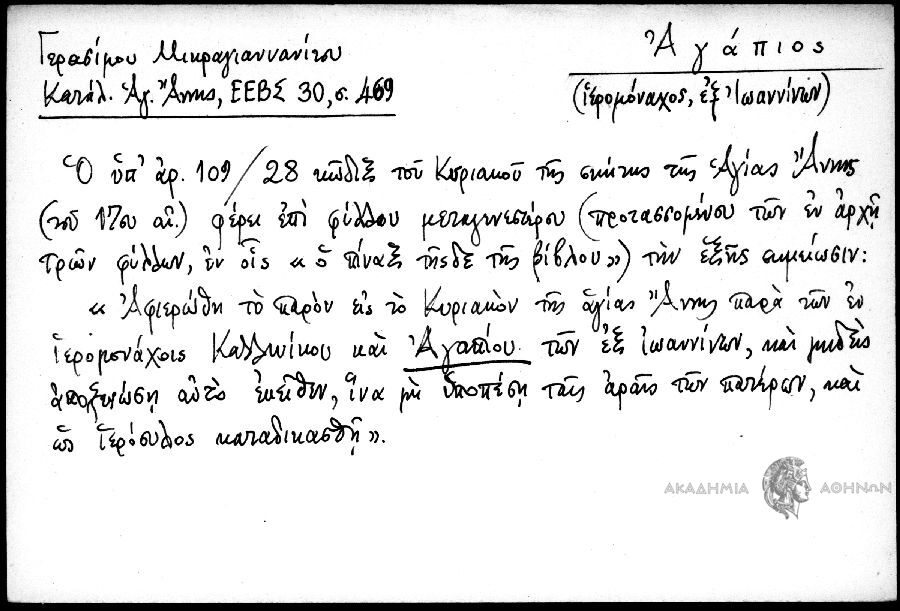 Γερασίμου Μικραγιαννανίτου
Κατάλ. Ἁγ. Ἄννης, ΕΕΒΣ 30, σ. 469
Ἀγάπιος
(ἱερομόναχος, ἐξ Ἰωαννίνων)
Ὁ ὑπ' ἀρ. 109/28 κῶδιξ τοῦ Κυριακοῦ τῆς σκήτης τῆς Ἁγίας Ἄννης
(τοῦ 17ου αἰ.) φέρει ἐπὶ φύλλου μεταγενεστέρου (προτασσομένου τῶν ἐν ἀρχῇ
τριῶν φύλλων, ἐν οἷς «ὁ πίναξ τῆςδε τῆς βίβλου») τὴν ἑξῆς σημείωσιν:
«Ἀφιερώθη τὸ παρὸν εἰς τὸ Κυριακὸν τῆς ἁγίας Ἄννης παρὰ τῶν ἐν
ἱερομονάχοις Καλλινίκου καὶ Ἀγαπίου τῶν ἐξ Ἰωαννίνων, καὶ μηδεὶς
ἀποξενώσῃ αὐτὸ ἐκεῖθεν, ἵνα μὴ ὑποπέσῃ ταῖς ἀραῖς τῶν πατέρων, καὶ
ὡς ἱερόσυλος καταδικασθῇ».
ΑΚΑΔΗΜΙΑ ΑΘΗΝΩΝ